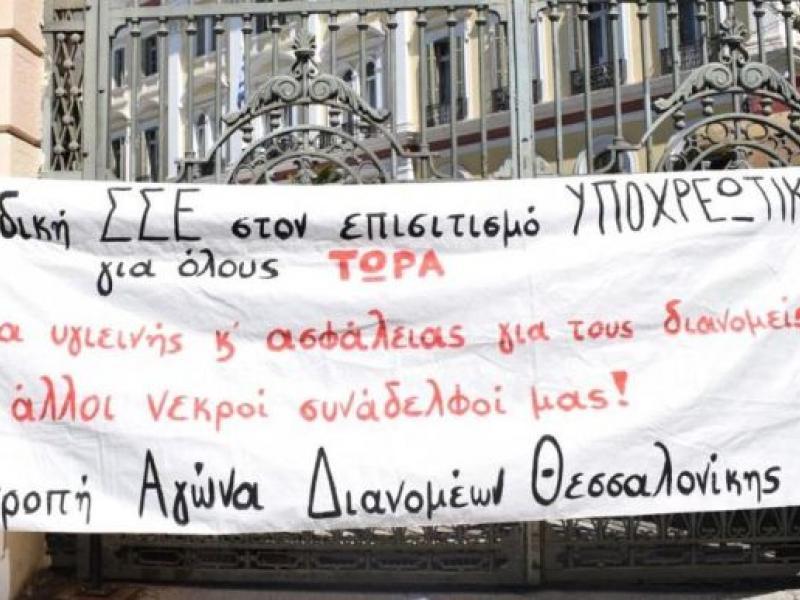 δική ΣΣΕ στον επισιτισμό ΥΠΟΧΡΕΩΤΙΚ
για όλους ΤΩΡΑ
α υγιεινής κ' ασφάλειας για τους διανομείς
άλλοι νεκροί συνάδελφοί μας!
ροπή Αγώνα Διανομέων Θεσσαλονίκης